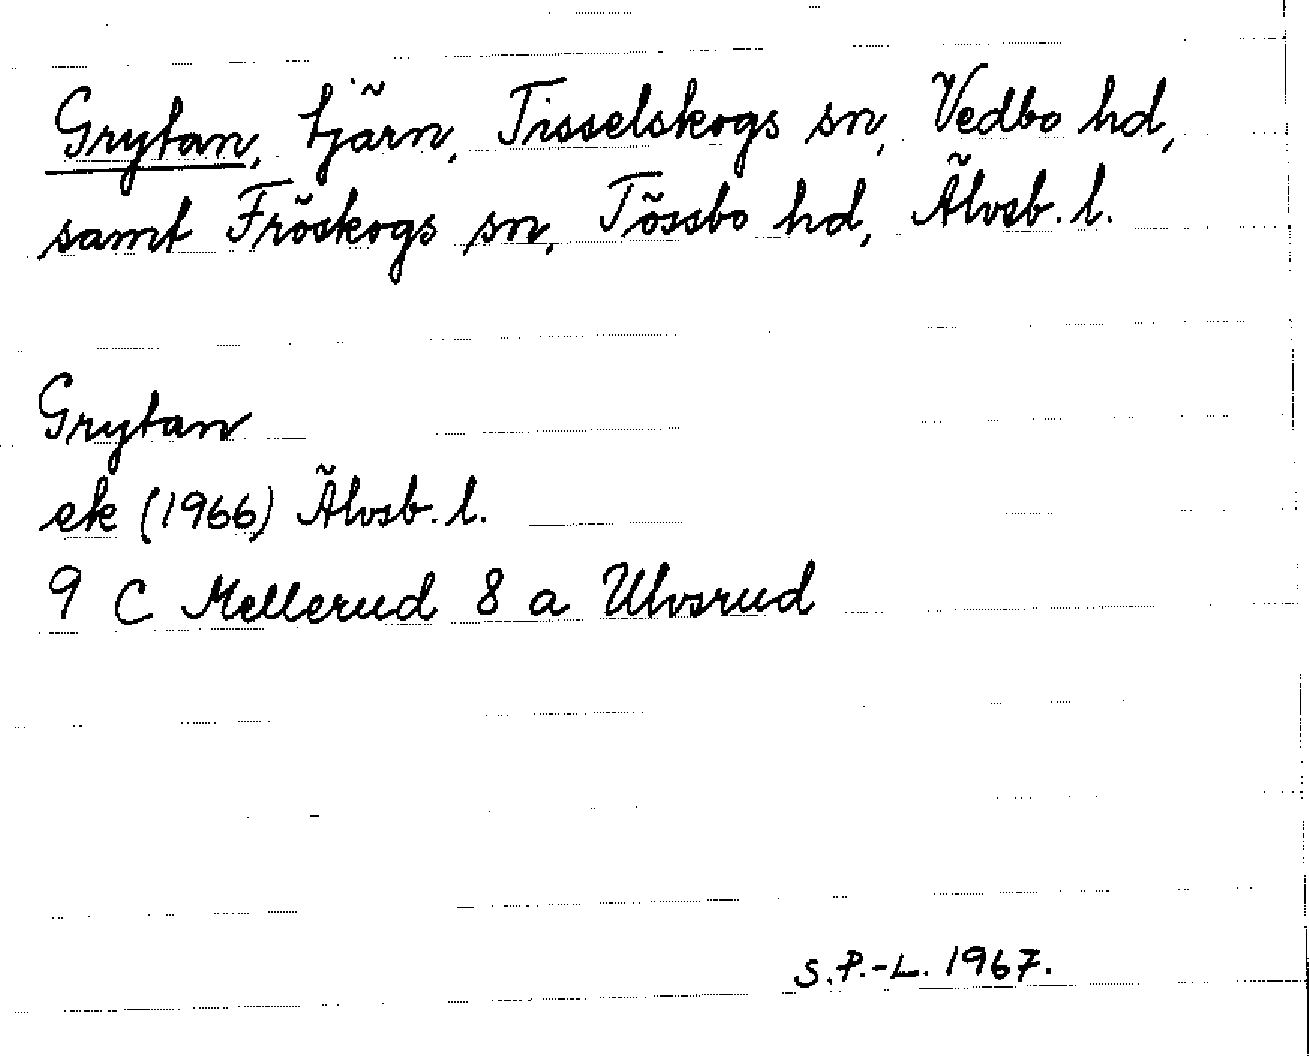 Grytan, tjärn, Tisselskogs sn, Vedbo hd,
samt Fröskogs sn, Tössbo hd, Älvsb. l.
Grytan
ek (1966) Älvsb. l.
9 C Mellerud 8 a Ulvsrud
S.P.-L. 1967.